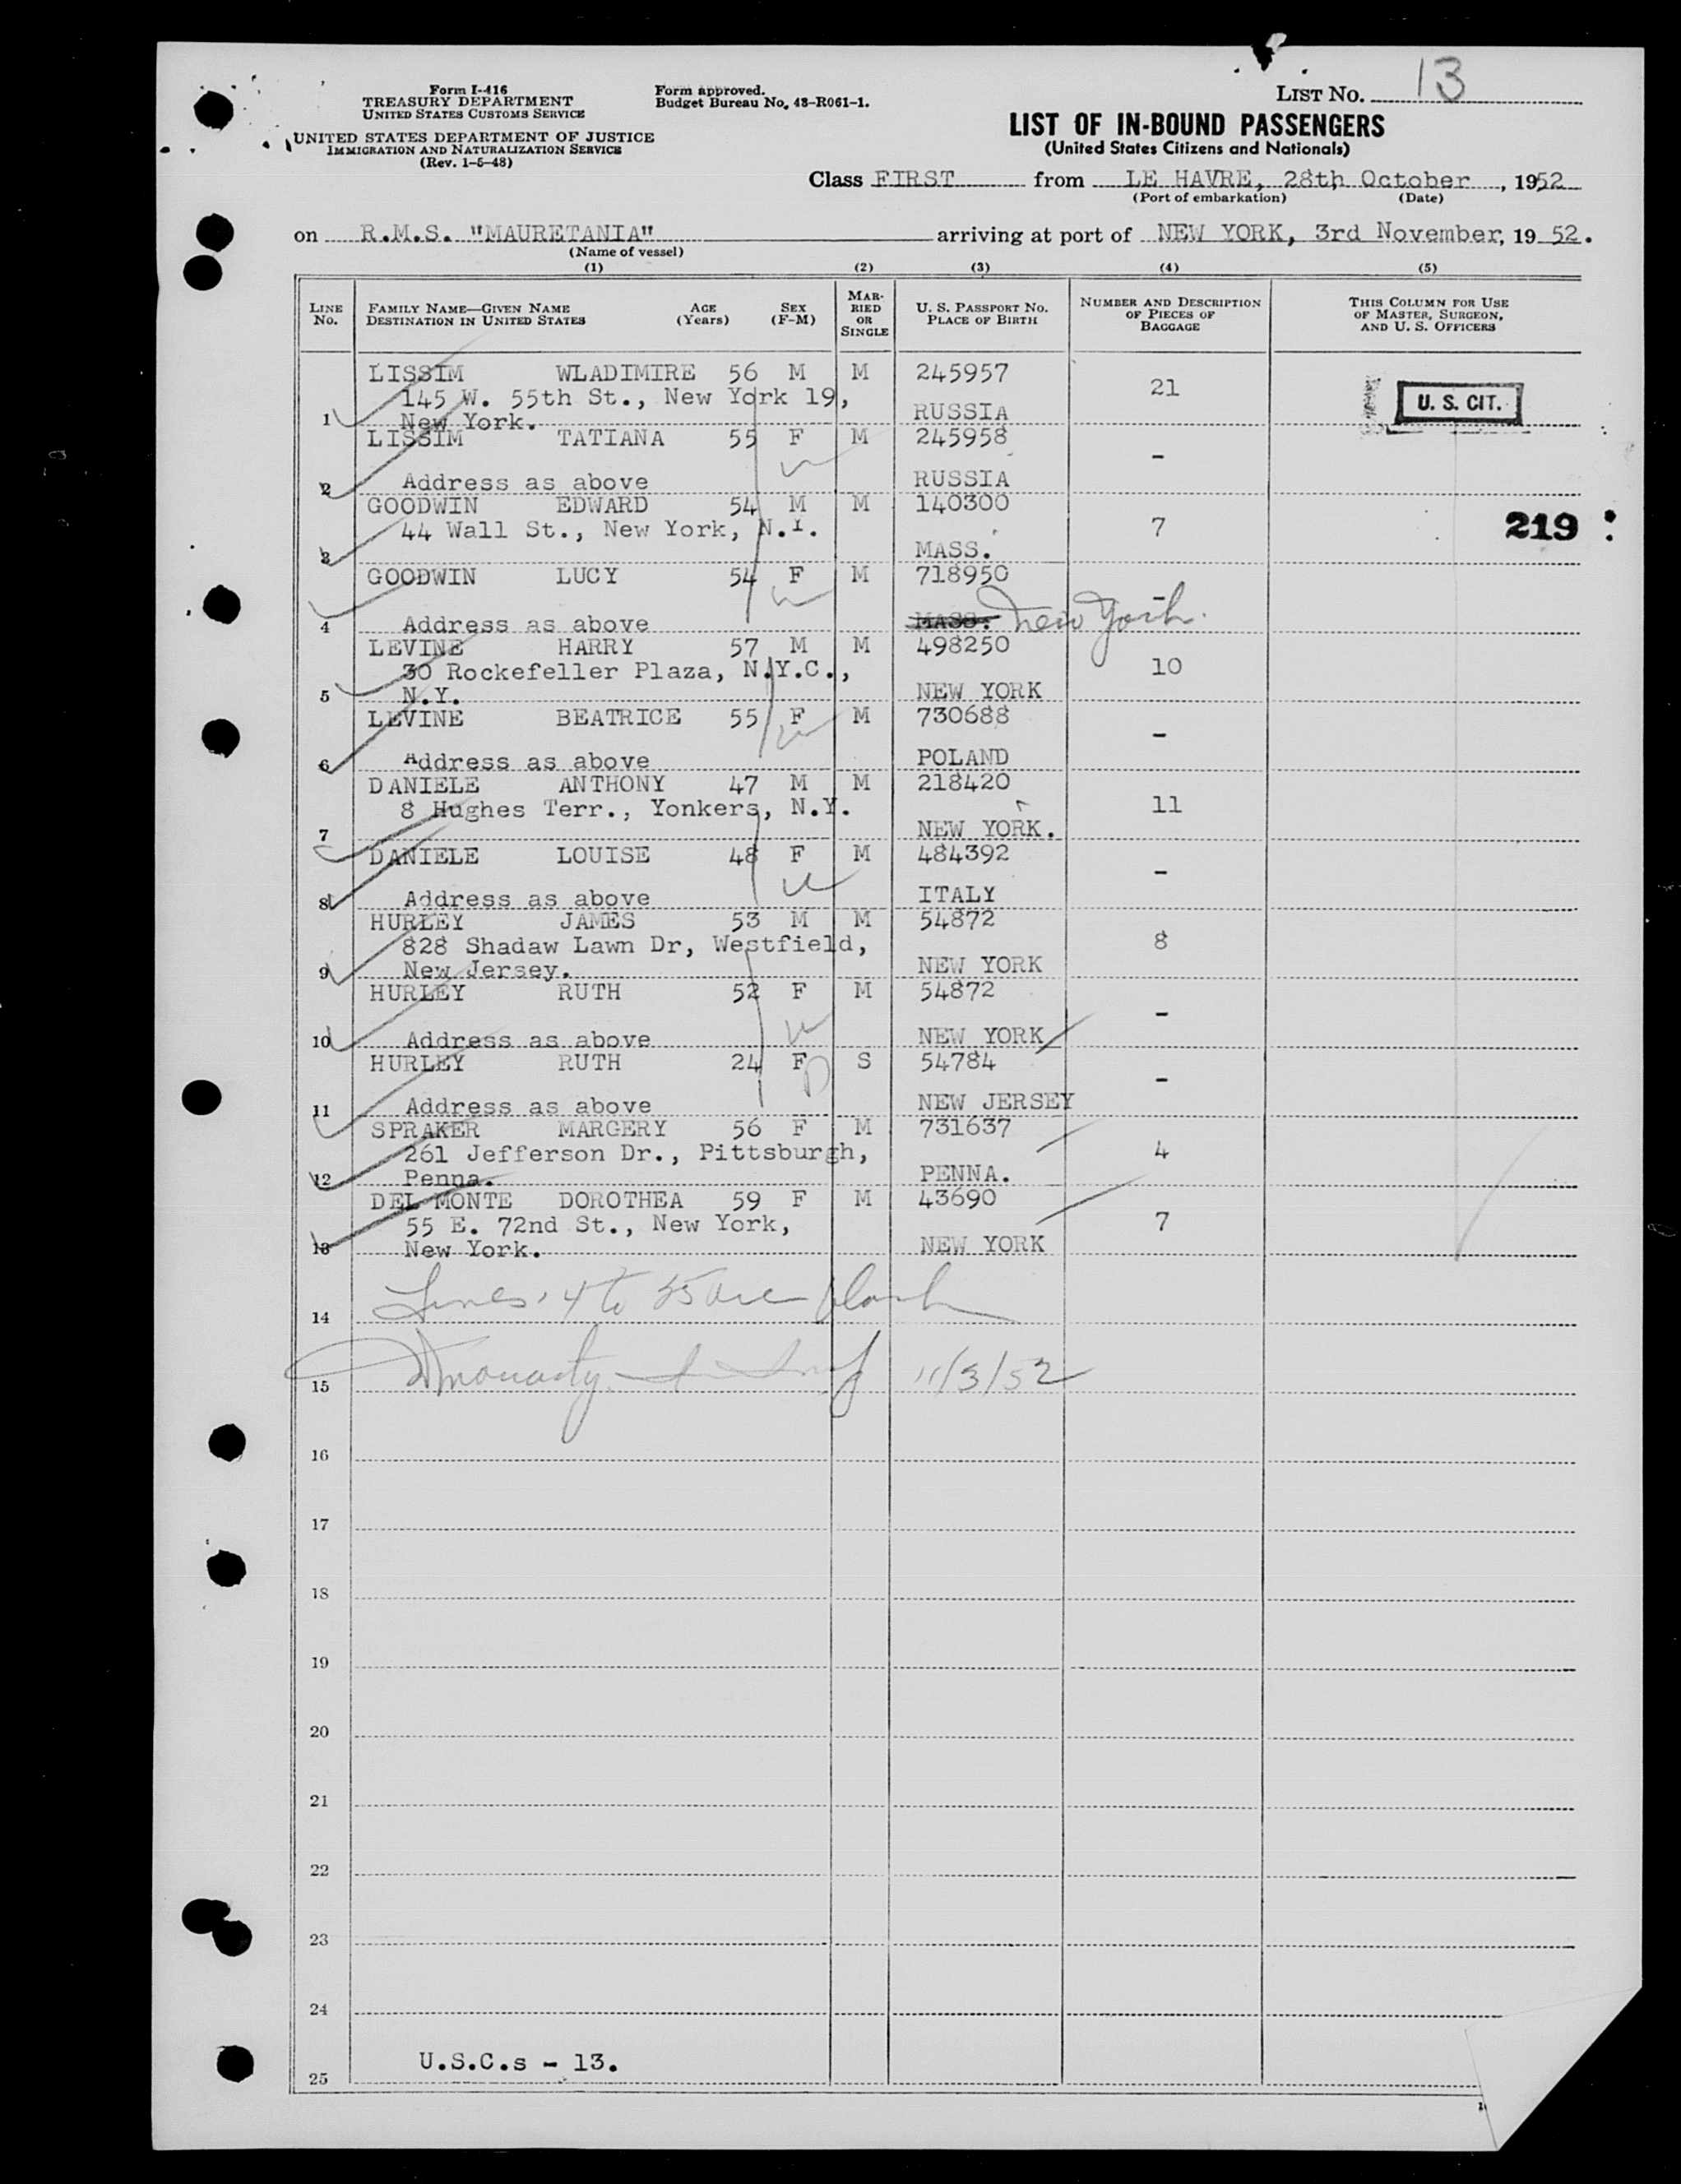 Form I-416
TREASURY DEPARTMENT
UNITED STATES CUSTOMS SERVICE
UNITED STATES DEPARTMENT OF JUSTICE
IMMIGRATION AND NATURALIZATION SERVICE
(Rev. 1-5-48)
Form approved.
Budget Bureau No. 43-R061-1.
LIST NO. 13
LIST OF IN-BOUND PASSENGERS
(United States Citizens and Nationals)
Class FIRST from LE HAVRE, 28th October, 1952
(Port of embarkation) (Date)
on R.M.S. "MAURETANIA" arriving at port of NEW YORK, 3rd November, 1952.
(Name of vessel)
(1) (2) (3) (4) (5)
LINE No. FAMILY NAME—GIVEN NAME DESTINATION IN UNITED STATES AGE (Years) SEX (F-M) MARRIED OR SINGLE U. S. PASSPORT NO. PLACE OF BIRTH NUMBER AND DESCRIPTION OF PIECES OF BAGGAGE THIS COLUMN FOR USE OF MASTER, SURGEON, AND U. S. OFFICERS
LISSIM WLADIMIRE 56 M M 245957
145 W. 55th St., New York 19, 21 U. S. CIT.
1 New York. RUSSIA
LISSIM TATIANA 55 F M 245958
-
2 Address as above RUSSIA
GOODWIN EDWARD 54 M M 140300
44 Wall St., New York, N.Y. 7 219
3 MASS.
GOODWIN LUCY 54 F M 718950
-
4 Address as above MASS. New York.
LEVINE HARRY 57 M M 498250
30 Rockefeller Plaza, N.Y.C., 10
5 N.Y. NEW YORK
LEVINE BEATRICE 55 F M 730688
-
6 Address as above POLAND
DANIELE ANTHONY 47 M M 218420
8 Hughes Terr., Yonkers, N.Y. 11
7 NEW YORK.
DANIELE LOUISE 48 F M 484392
-
8 Address as above ITALY
HURLEY JAMES 53 M M 54872
828 Shadaw Lawn Dr, Westfield, 8
9 New Jersey. NEW YORK
HURLEY RUTH 52 F M 54872
-
10 Address as above NEW YORK
HURLEY RUTH 24 F S 54784
-
11 Address as above NEW JERSEY
SPRAKER MARGERY 56 F M 731637
261 Jefferson Dr., Pittsburgh, 4
12 Penna. PENNA.
DEL MONTE DOROTHEA 59 F M 43690
55 E. 72nd St., New York, 7
13 New York. NEW YORK
14 Lines 14 to 25 are blank
15 11/3/52
16
17
18
19
20
21
22
23
24
U.S.C.s - 13.
25